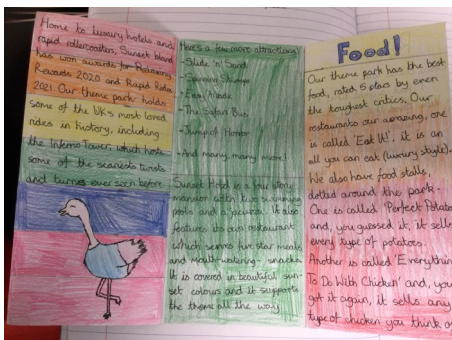 Home to luxury hotels and
rapid rollercoasters, Sunset Island
has won awards for Relaxing
Rewards 2020 and Rapid Rides
2021. Our theme park holds
some of the UK's most loved
rides in history, including
the Inferno Tower, which hosts
some of the scariest twists
and turns ever seen before
Here's a few more attractions
-Slide 'n' Sand
-Easy Arcade
-The Safari Bus
-Jump of Horror
-And many, many more!
Sunset Hotel is a four story
mansion with two swimming
pools and a jacuzzi. It also
features its own restaurant
which serves five star meals
and mouth-watering snacks.
It is covered in beautiful sun-
set colours and it supports
the theme all the way
Food!
Our theme park has the best
food, rated 5 stars by even
the toughest critics. Our
restaurants our amazing, one
is called 'Eat It!', it is an
all you can eat (luxury style).
We also have food stalls,
dotted around the park.
One is called 'Perfect Potato
and, you guessed it, it sells
every type of potatoes.
Another is called 'Everything
To Do With Chicken' and, you
got it again, it sells any
type of chicken you think of